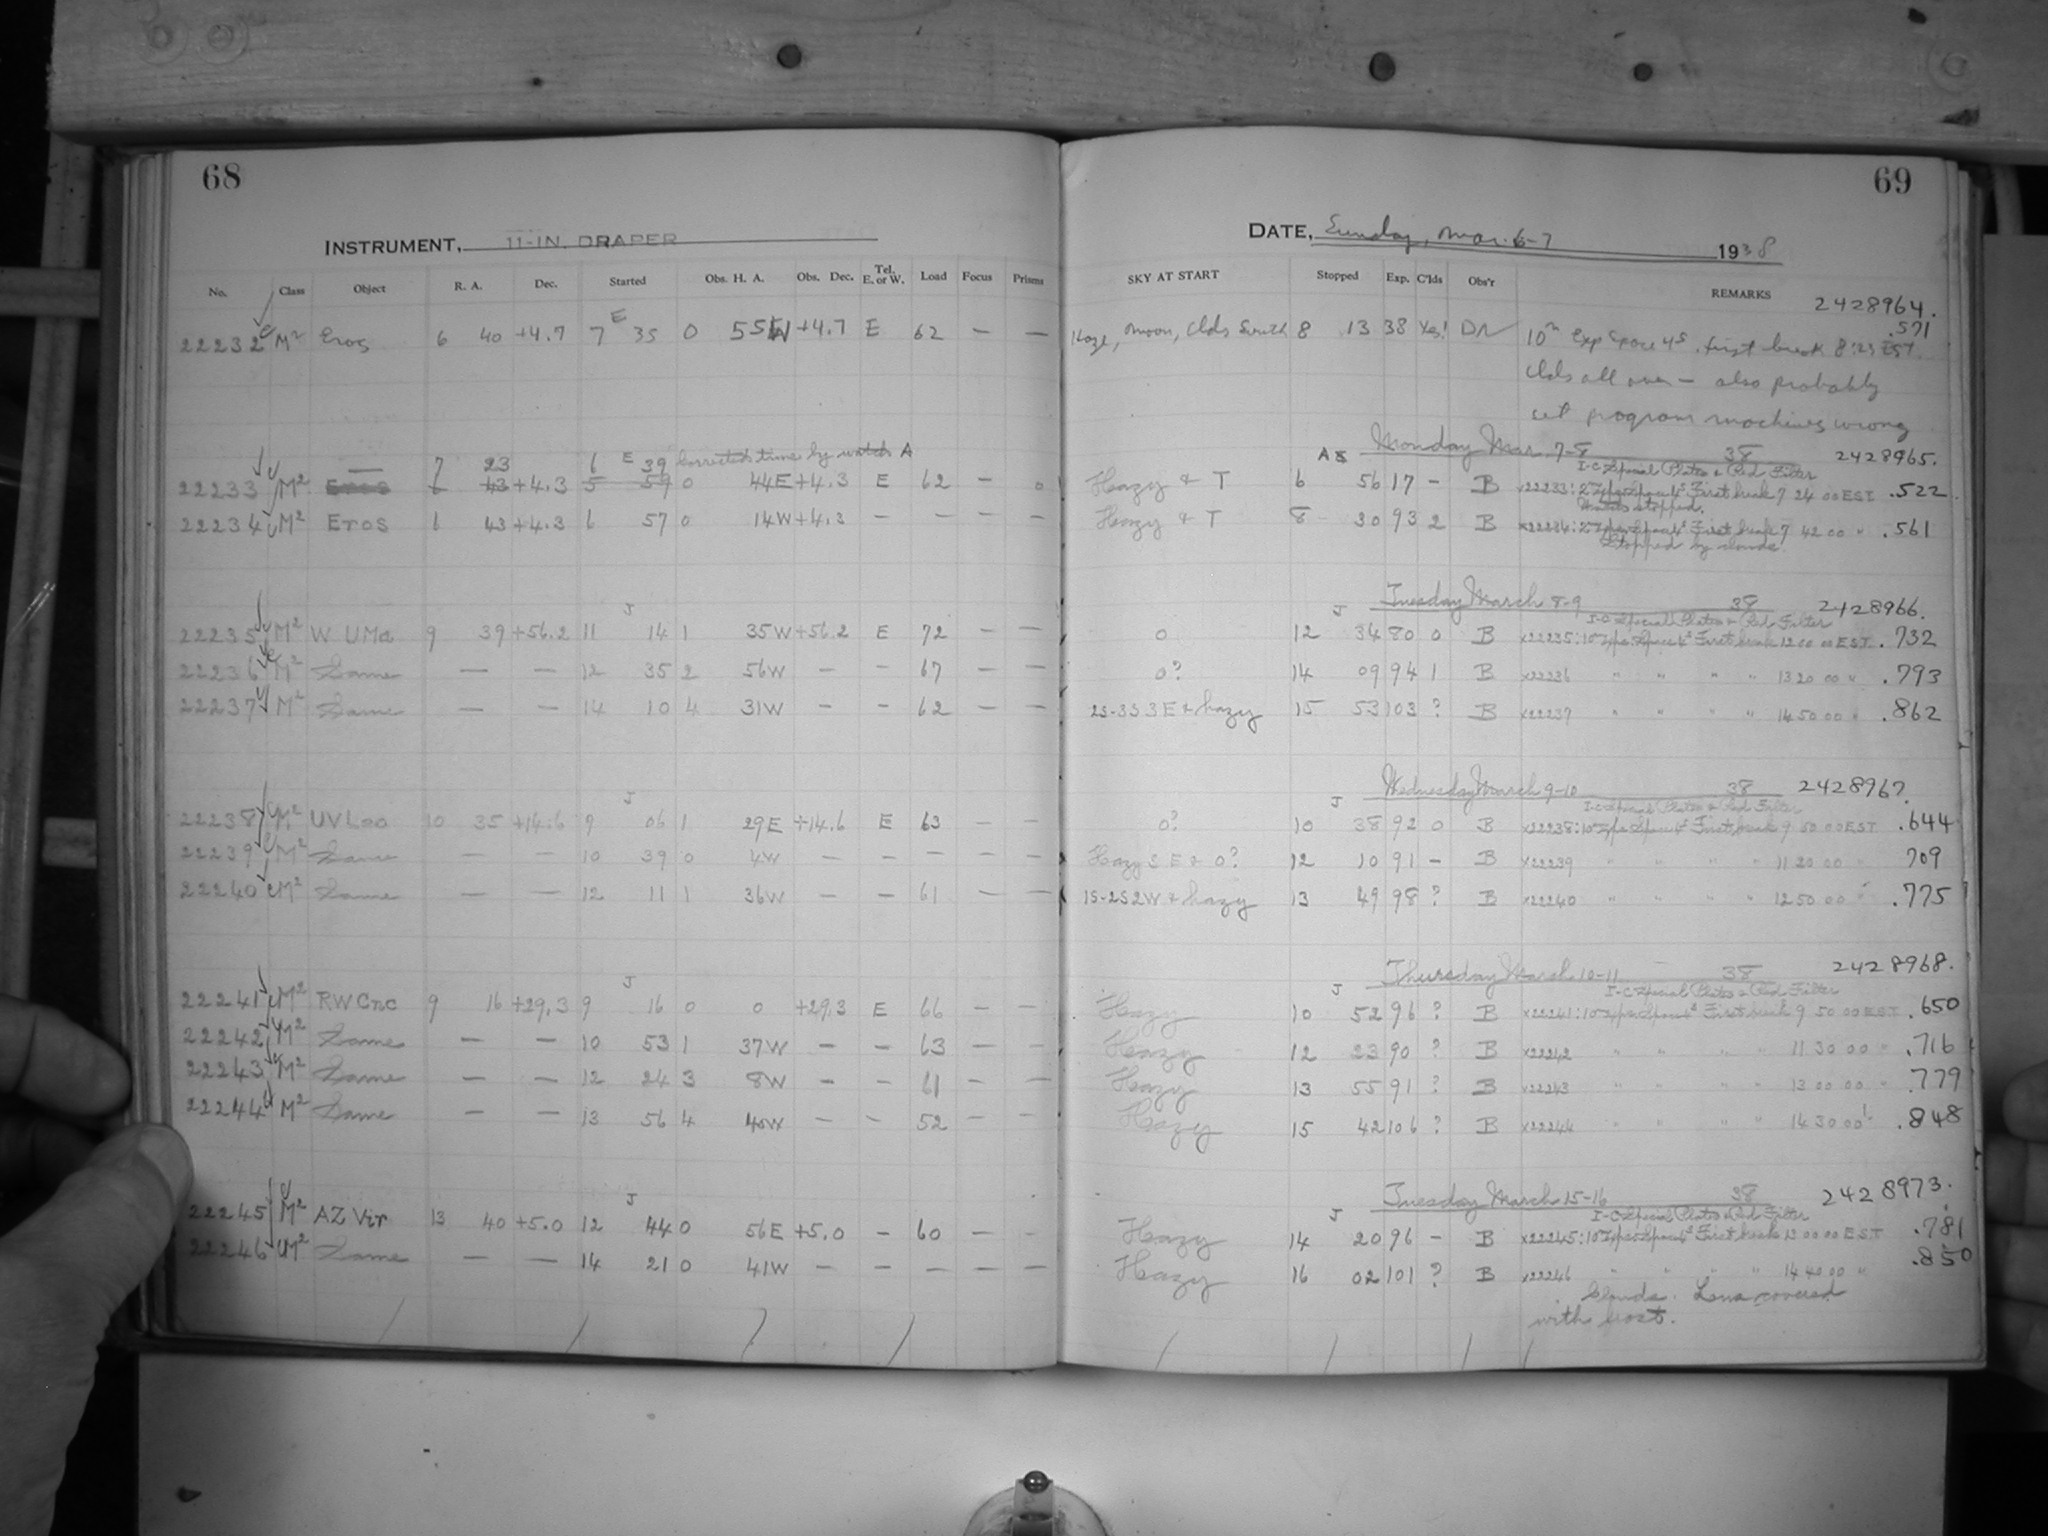 68
INSTRUMENT, 11-IN. DRAPER
No. Class Object R. A. Dec. Started Obs. H. A. Obs. Dec. Tel. E. or W. Load Focus Prisms
22232 M² Eros 6 40 +4.7 7 E 35 0 55W +4.7 E 62 — —
— 7 23 6 E 39 Corrected time by watch A
22233 M² Eros 6 43 +4.3 5 59 0 44E +4.3 E 62 — 0
22234 M² Eros 6 43 +4.3 6 57 0 14W +4.3 — — — —
J
22235 M² W UMa 9 39 +56.2 11 14 1 35W +56.2 E 72 — —
22236 M² Same — — 12 35 2 56W — — 67 — —
22237 M² Same — — 14 10 4 31W — — 62 — —
J
22238 M² UV Leo 10 35 +14.6 9 06 1 29E +14.6 E 63 — —
22239 M² Same — — 10 39 0 4W — — — — —
22240 M² Same — — 12 11 1 36W — — 61 — —
J
22241 M² RW Cnc 9 16 +29.3 9 16 0 0 +29.3 E 66 — —
22242 M² Same — — 10 53 1 37W — — 63 — —
22243 M² Same — — 12 24 3 8W — — 61 — —
22244 M² Same — — 13 56 4 40W — — 52 — —
J
22245 M² AZ Vir 13 40 +5.0 12 44 0 56E +5.0 — 60 — —
22246 M² Same — — 14 21 0 41W — — — — —
69
DATE, Sunday, Mar. 6-7 1938
SKY AT START Stopped Exp. C'lds Obs'r REMARKS
2428964.
Haze, moon, Clds South 8 13 38 Yes! DN 10ᵐ Exp Space 4ˢ. first break 8:23 EST. .571
Clds all over — also probably
set program machines wrong
Monday Mar. 7-8 38 2428965.
I-C Special Plates & Red Filter
Hazy & T 6 56 17 — B x22233: Exp. Space 4ˢ First break 7 24 00 EST .522
Watch stopped.
Hazy & T 8 30 93 2 B x22234: Exp. Space 4ˢ First break 7 42 00 " .561
Stopped by clouds.
Tuesday March 8-9 38 2428966.
J I-C Special Plates & Red Filter
0 12 34 80 0 B x22235: 10ᵐ Exp. Space 4ˢ First break 12 00 00 EST .732
0? 14 09 94 1 B x22236 " " " " 13 20 00 " .793
2S-3S 3E & hazy 15 53 103 ? B x22237 " " " " 14 50 00 " .862
Wednesday March 9-10 38 2428967.
J I-C Special Plates & Red Filter
0? 10 38 92 0 B x22238: 10ᵐ Exp. Space 4ˢ First break 9 50 00 EST .644
Hazy S E & 0? 12 10 91 — B x22239 " " " " 11 20 00 " 709
1S-2S 2W & hazy 13 49 98 ? B x22240 " " " " 12 50 00 " .775
Thursday March 10-11 38 2428968.
J I-C Special Plates & Red Filter
Hazy 10 52 96 ? B x22241: 10ᵐ Exp. Space 4ˢ First break 9 50 00 EST .650
Hazy 12 23 90 ? B x22242 " " " " 11 30 00 " .716
Hazy 13 55 91 ? B x22243 " " " " 13 00 00 " .779
Hazy 15 42 106 ? B x22244 " " " " 14 30 00 " .848
Tuesday March 15-16 38 2428973.
J I-C Special Plates & Red Filter
Hazy 14 20 96 — B x22245: 10ᵐ Exp. Space 4ˢ First break 13 00 00 EST .781
Hazy 16 02 101 ? B x22246 " " " " 14 40 00 " .850
Clouds. Lens covered
with frost.